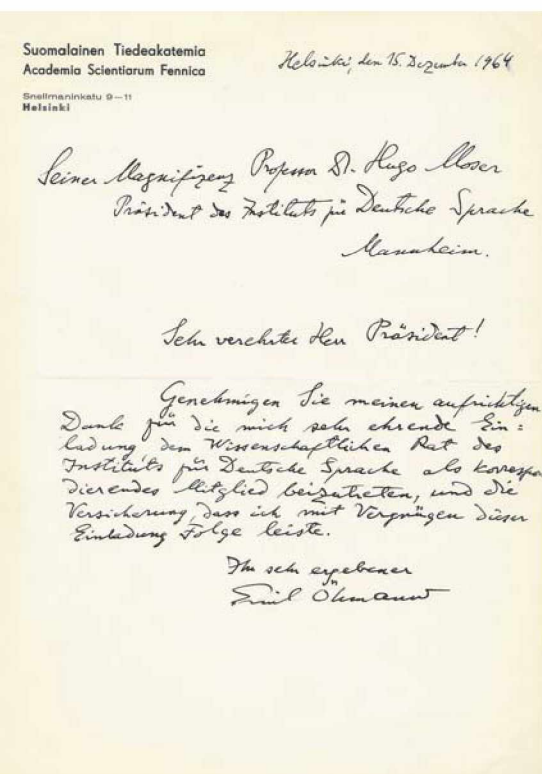 Suomalainen Tiedeakatemia
Academia Scientiarum Fennica
Snellmaninkatu 9—11
Helsinki
Helsinki, den 15. Dezember 1964
Seiner Magnifizenz Professor Dr. Hugo Moser
Präsident des Instituts für Deutsche Sprache
Mannheim.
Sehr verehrter Herr Präsident!
Genehmigen Sie meinen aufrichtigen
Dank für die mich sehr ehrende Ein=
ladung dem Wissenschaftlichen Rat des
Instituts für Deutsche Sprache als korrespon
dierendes Mitglied beizutreten, und die
Versicherung, dass ich mit Vergnügen dieser
Einladung Folge leiste.
Ihr sehr ergebener
Emil Öhmann